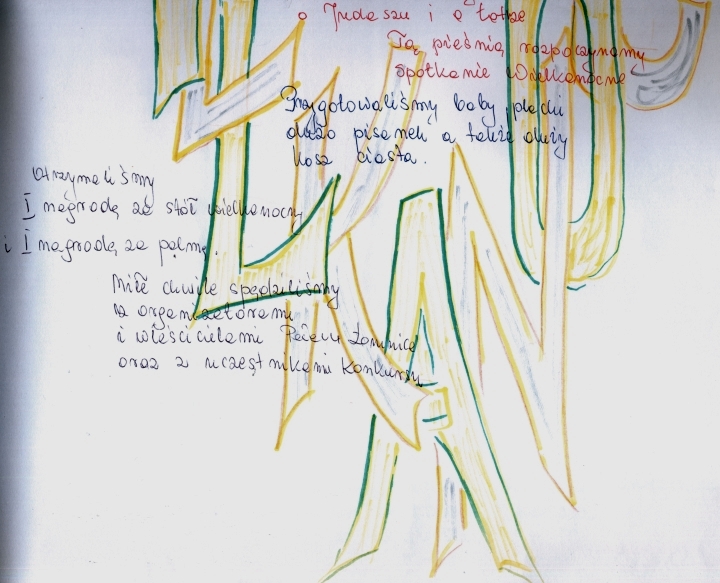 o Judaszu i o Łotrze
Tą pieśnią rozpoczynamy
spotkanie Wielkanocne
Przygotowaliśmy baby, placki
dużo pisanek a także duży
kosz ciasta.
Otrzymaliśmy
I nagrodę za stół wielkanocny
i I nagrodę za palmę.
Miłe chwile spędziliśmy
z organizatorami
i właścicielami Pałacu Łomnica
oraz z uczestnikami konkursu